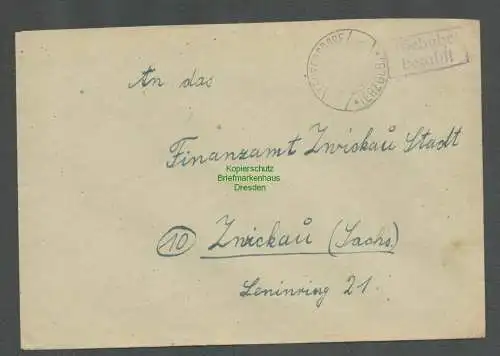 Gebühr
bezahlt
(ERZGEB.)
An das
Finanzamt Zwickau Stadt
Kopierschutz
Briefmarkenhaus
Dresden
10 Zwickau (Sachs)
Leninring 21.